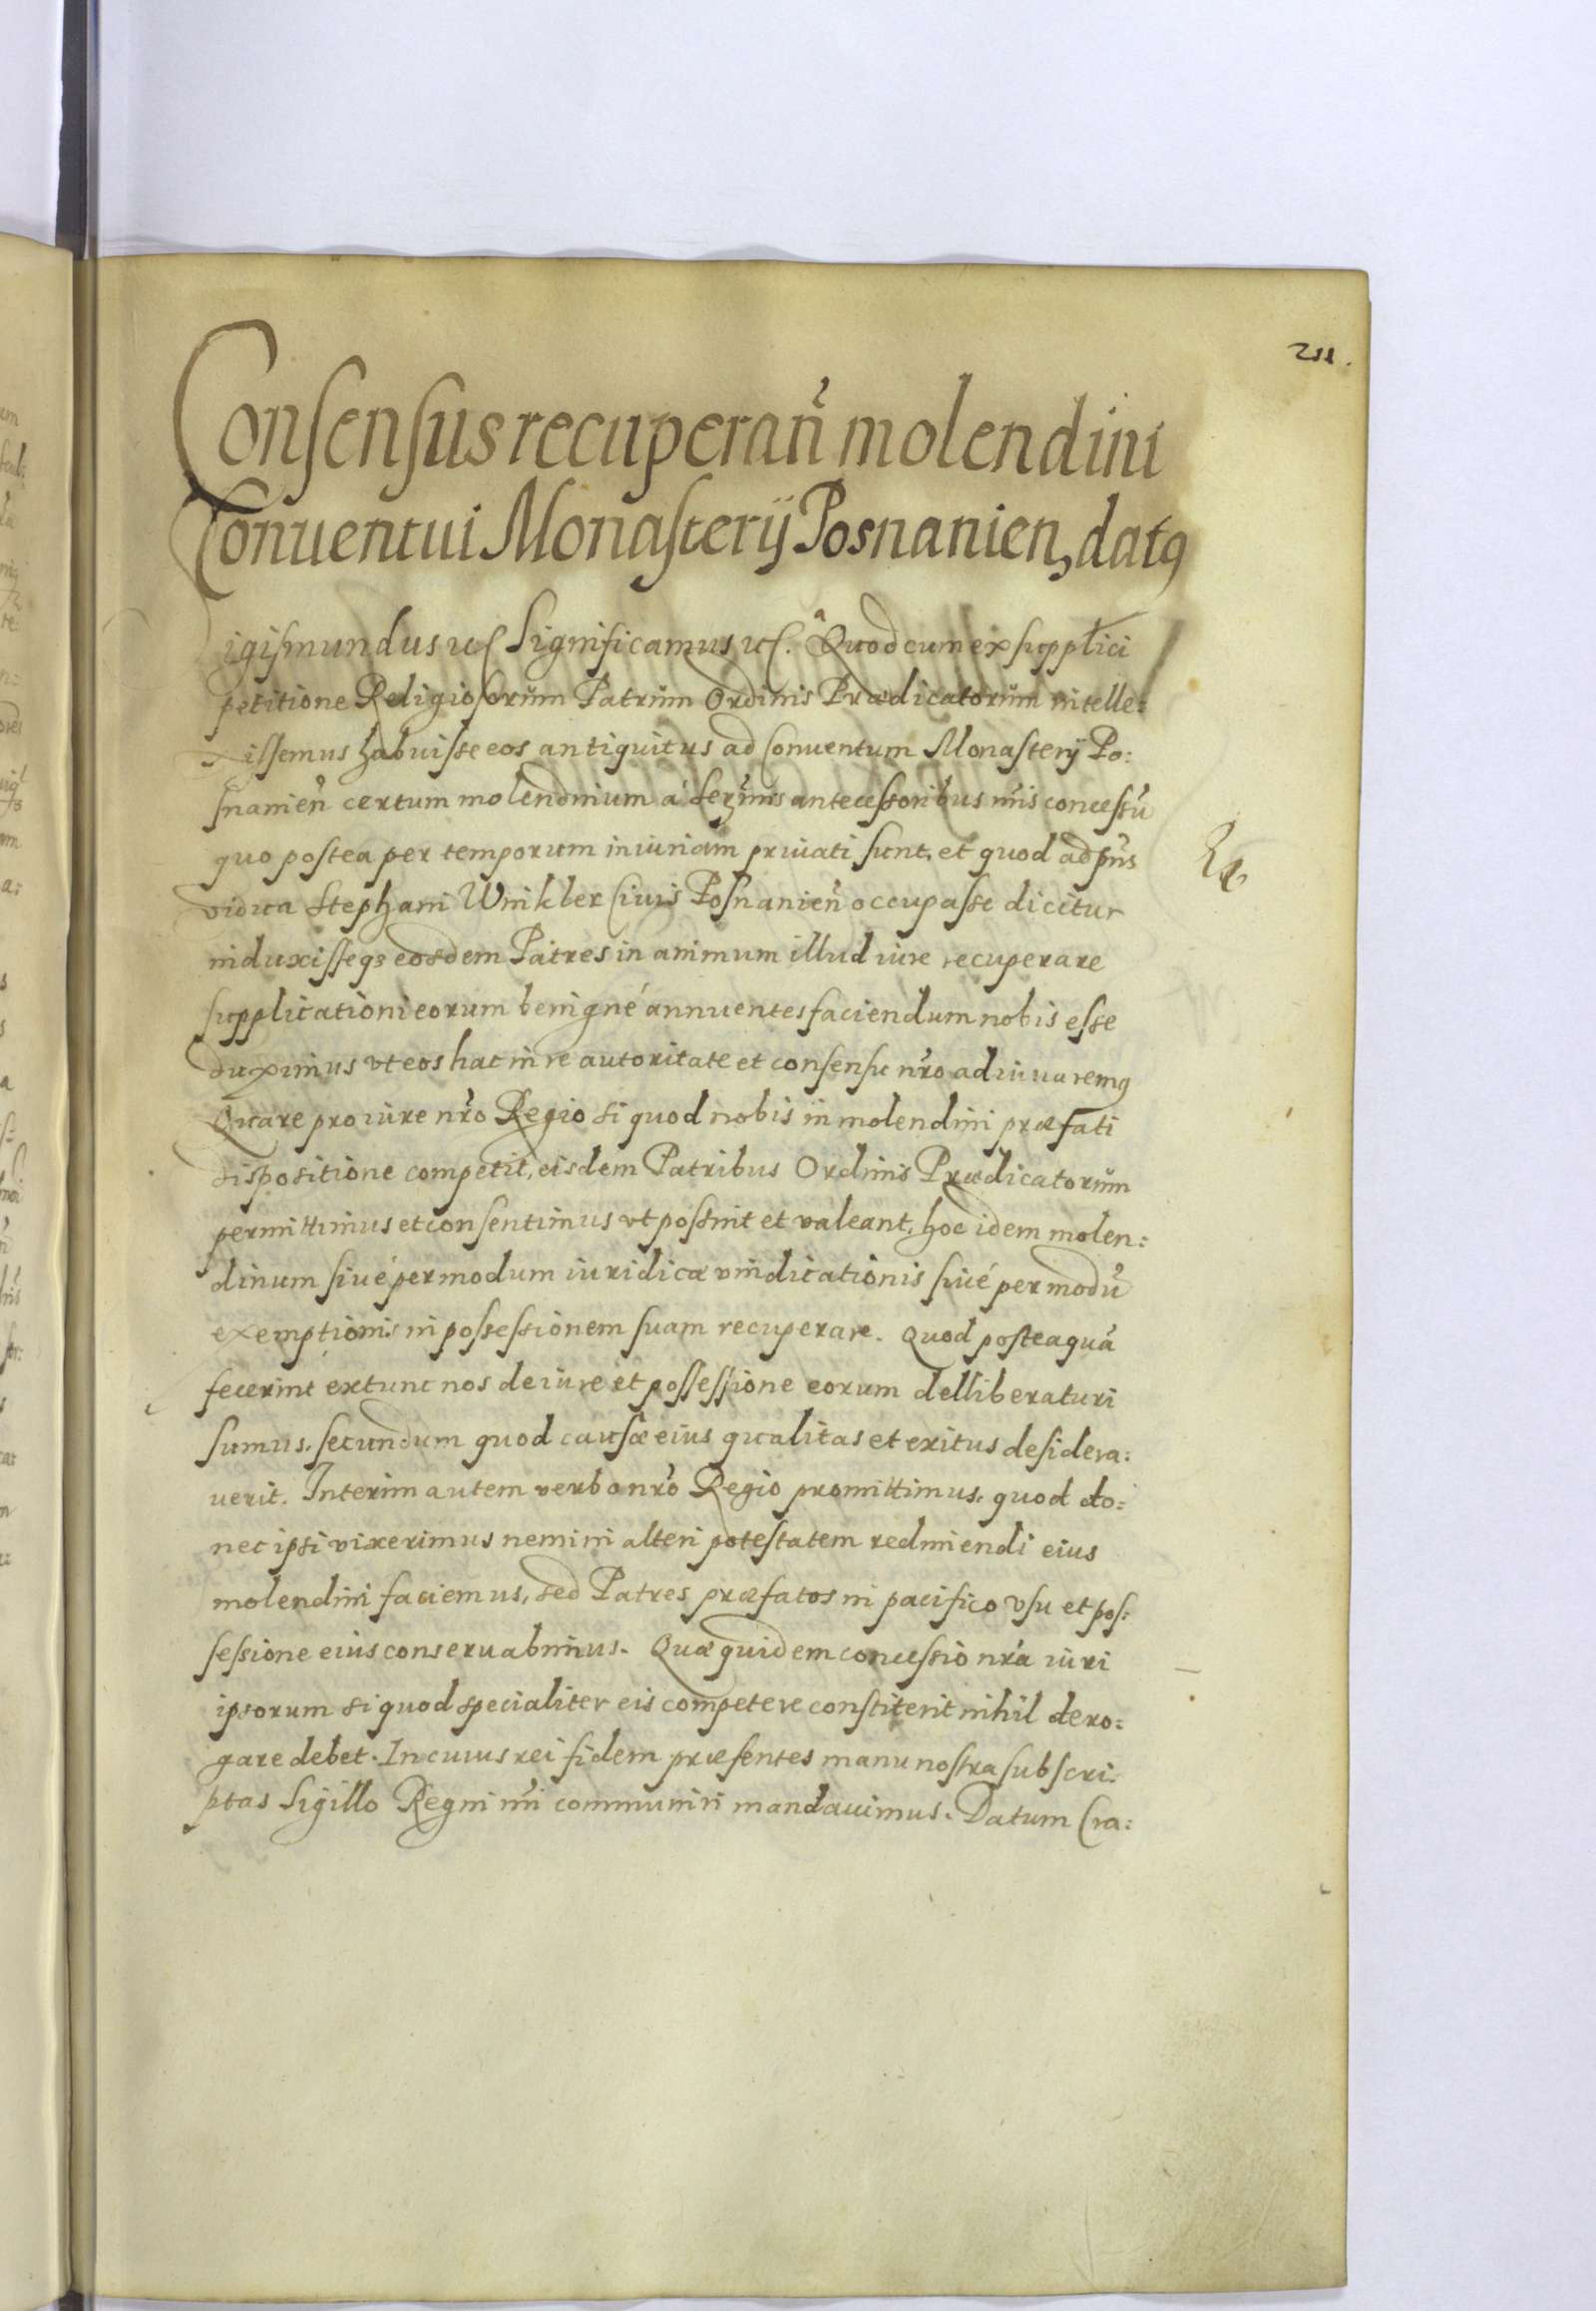 211.
Consensus recuperan̄ molendini
Conuentui Monasterij Posnanien, datꝰ
igismundus uc̄ Significamus uc̄. Quod cum ex supplici
petitione Religiosorŭm Patrŭm Ordinis Prædicatorŭm intelle:
xissemus habuisse eos antiquitus ad Conuentum Monasterij Po:
snanien̄ certum molendinum á Ser̄mis antecessoribus nr̄is concessū
quo postea per temporum iniuriam priuati sunt, et quod ad pn̄s
vidua Stephani Winkler Ciuis Posnanien̄ occupasse dicitur
induxisseqꝫ eosdem Patres in animum illud iure recuperare
supplicationi eorum benigné annuentes faciendum nobis esse
duximus vt eos hac in re autoritate et consensu nr̄o adiuuaremꝰ
Quare pro iure nr̄o Regio si quod nobis in molendini præfati
dispositione competit, eisdem Patribus Ordinis Prædicatorŭm
permittimus et consentimus vt possint et valeant, hoc idem molen:
dinum siué per modum iuridicæ vindicationis siué per modū
exemptionis in possessionem suam recuperare. Quod posteaquā
fecerint extunc nos de iure et possessione eorum delliberaturi
sumus. secundum quod causæ eius qualitas et exitus desidera:
uerit. Interim autem verbo nr̄o Regio promittimus, quod do:
nec ipsi vixerimus nemini alteri potestatem redimendi eius
molendini faciemus, sed Patres præfatos in pacifico vsu et pos:
sessione eius conseruabimus. Quæ quidem concessio nr̄a iuri
ipsorum si quod specialiter eis competere constiterit nihil dero:
gare debet. In cuius rei fidem præsentes manu nostra subscri:
ptas Sigillo Regni nr̄i communiri mandauimus. Datum Cra: